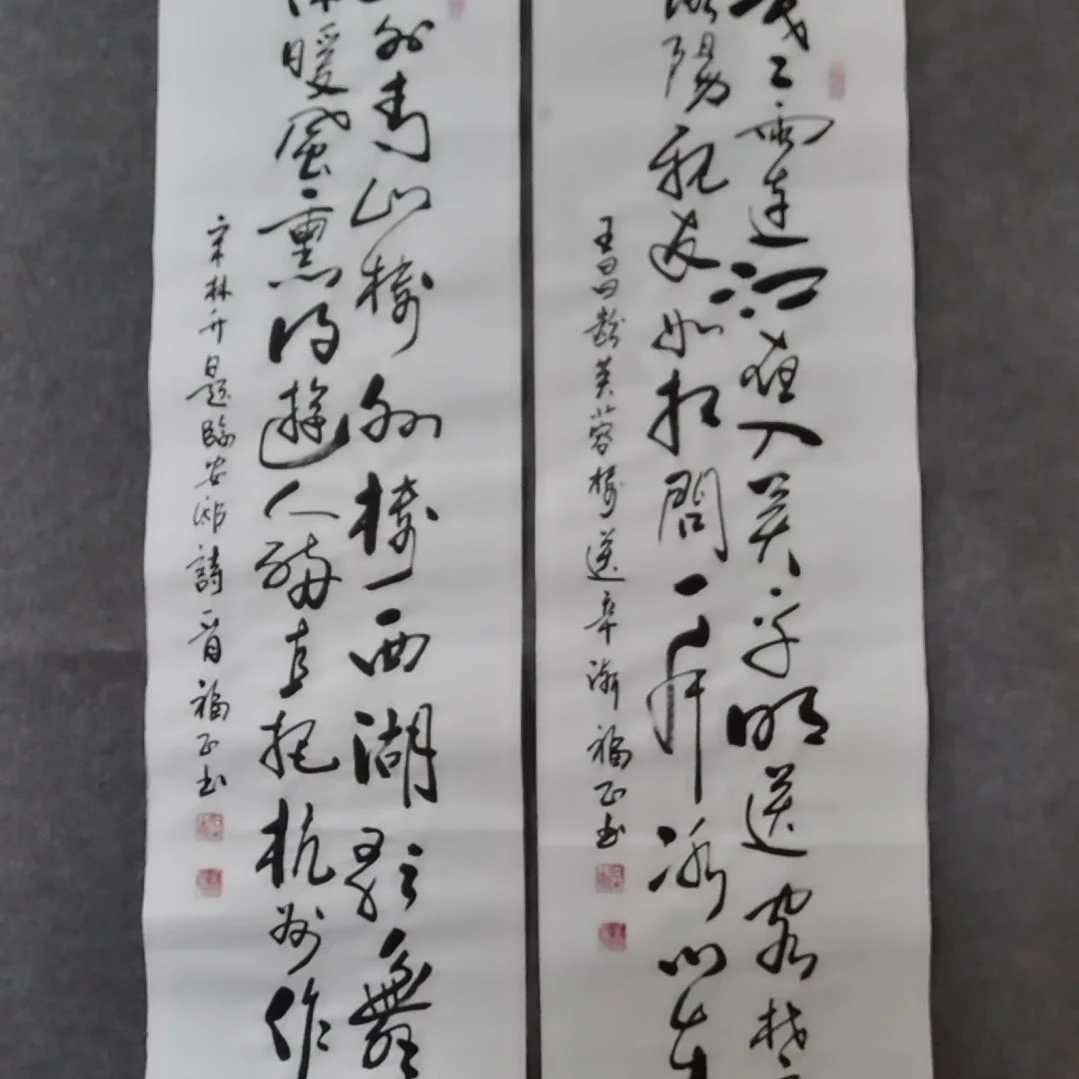 寒雨連江夜入吴平明送客楚
陽親友如相問一片冰心在
王昌齡芙蓉樓送辛漸福正书
外青山樓外樓西湖歌舞
暖風熏得遊人醉直把杭州作
宋林升題臨安邸詩一首福正书